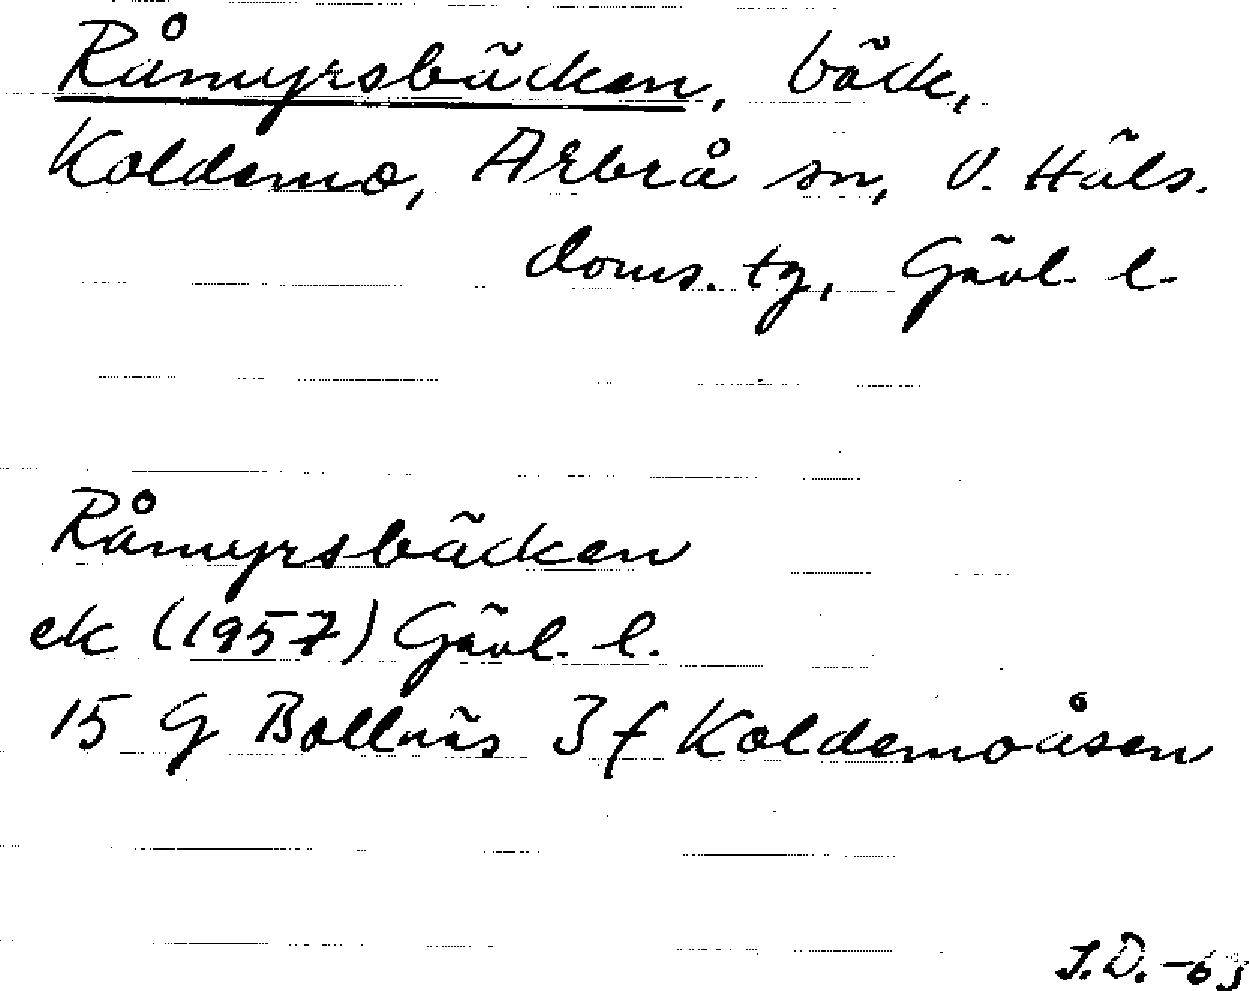 Råmyrsbäcken, bäck,
Koldemo, Arbrå sn, V. Häls.
doms. tg, Gävl. l.
Råmyrsbäcken
ek (1957) Gävl. l.
15 G Bollnäs 3 f Koldemoåsen
I.D. -63